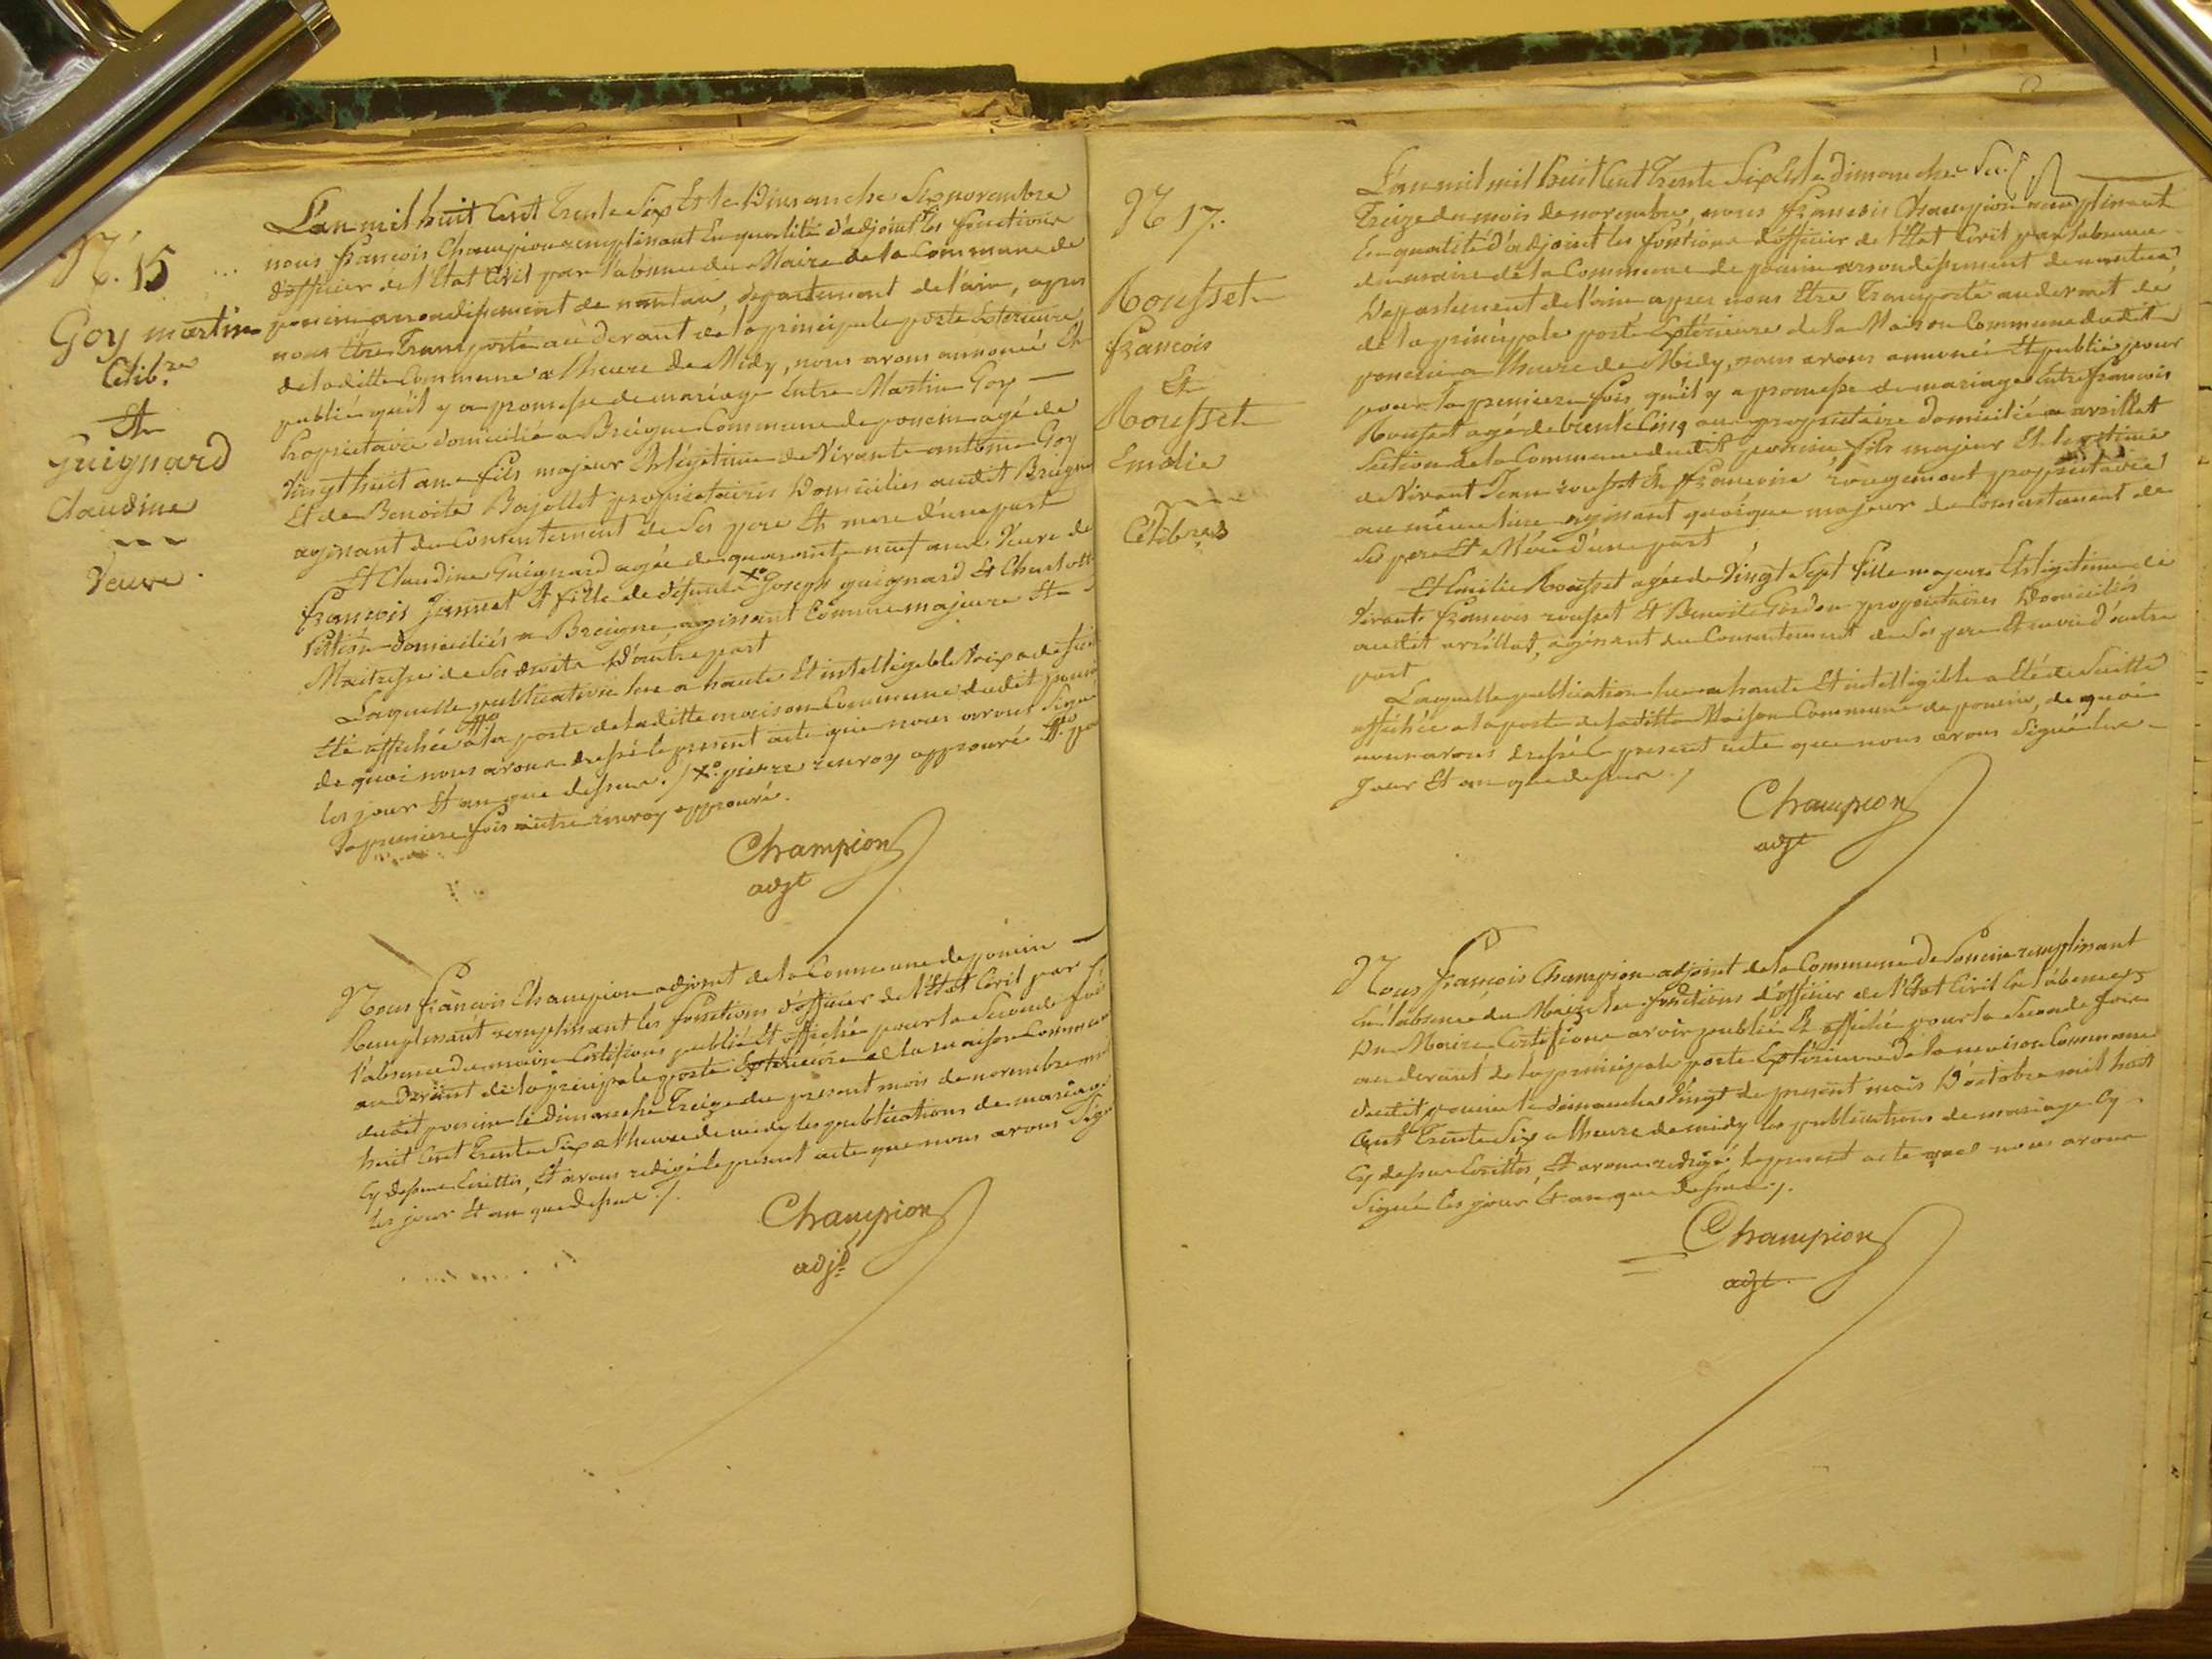 N.° 15
Goy martin
Célib.re
Et
Guignard
Claudine
Veuve.
L'an mil huit Cent Trente Six Et le Dimanche Six novembre
nous françois Champion remplissant En qualité d'adjoint les fonctions
d'officier de l'Etat Civil par l'absence du Maire de la Commune de
poncin arrondissement de nantua, departement de l'ain, apres
nous Etre Transporté au devant de la principale porte Exterieure
de laditte Commune a l'heure de Midy, nous avons annoncé Et
publié qu'il y a promesse de mariage Entre Martin Goy
Propriétaire domicilié a Breigne Commune de poncin agé de
vingt huit ans fils majeur Et légitime de Vivants antoine Goy
Et de Benoite Bajollet propriétaires Domiciliés audit Breigne
agissant du Consentement de Ses pere Et mere d'une part
Et Claudine Guignard agée de quarante neuf ans Veuve de
françois Jannet Et fille de défunts X° Joseph guignard Et Charlotte
domiciliés a Breigne agissant Comme majeure Et
Maitresse de Ses droits D'autre part
Laquelle publication lue a haute Et intelligible Voix a de suite
Eté affichée ff° a la porte de laditte maison Commune dudit poncin
de quoi nous avons dressé le present acte que nous avons Signé
les jour Et an que dessus./ X° pierre renvoy approuvé ff° pour
la premiere fois autre renvoy approuvé.
Champion
adjt
Nous françois Champion adjoint de la Commune de poncin
Remplissant remplissant les fonctions d'officier de l'Etat Civil par
l'absence du maire Certifions publié Et affiché pour la Seconde fois
au devant de la principale porte Exterieure de la maison Commune
dudit poncin le dimanche Treize du present mois de novembre mil
huit Cent Trente Six a l'heure de midy les publications de mariage
Cy dessus Ecrittes, Et avons redigé le present acte que nous avons Signé
les jour Et an que dessus./.
Champion
adjt
N° 17.
Rousset
françois
Et
Rousset
Emelie
Célibres
L'an mil mil huit Cent Trente Six Et le dimanche
Treize du mois de novembre, nous françois Champion remplissant
En qualité d'adjoint les fontions d'officier de l'Etat Civil par l'absence
du maire de la Commune de poncin arrondissement de nantua,
Departement de l'ain apres nous Etre Transporté au devant de
de la principale porte Extérieure de la Maison Commune dudit
poncin a l'heure de Midy, nous avons annoncé Et publié pour
pour la premiere fois qu'il y a promesse de mariage Entre françois
Rousset agé de trente Cinq ans propriétaire domicilié a avrillat
Section de la Commune dudit poncin fils majeur Et légitime
de Vivant Jean rousset Et françoise rougemont propriétaires
au même lieu agissant quoique majeur du Consentement de
Ses pere Et Mére d'une part
Et Emilie Rousset agée de Vingt Sept fille majeure Et légitime de
Vivants françois rousset Et Benoite Gordon propriétaires Domiciliés
audit avrillat, agissant du Consentement de Ses pere Et mere d'autre
part
Laquelle publication lue a haute Et intelligible a Eté de Suitte
affichée a la porte de laditte Maison Commune de poncin, de quoi
nous avons dressé le present acte que nous avons Signé les
jour Et an que dessus./
Champion
adjt
Nous françois Champion adjoint de la Commune de Poncin remplissant
En l'absence du Maire les fonctions d'officier de l'Etat Civil En l'absence
Du Maire Certifions avoir publié Et affiché pour la Seconde fois
au devant de la principale porte Extérieure de la maison Commune
dudit poncin le dimanche Vingt du present mois D'octobre mil huit
Cent Trente Six a l'heure de midy les publications de mariage Cy
Cy dessus Ecrittes, Et avons redigé le present acte que nous avons
Signé les jour Et an que dessus./.
Champion
adjt